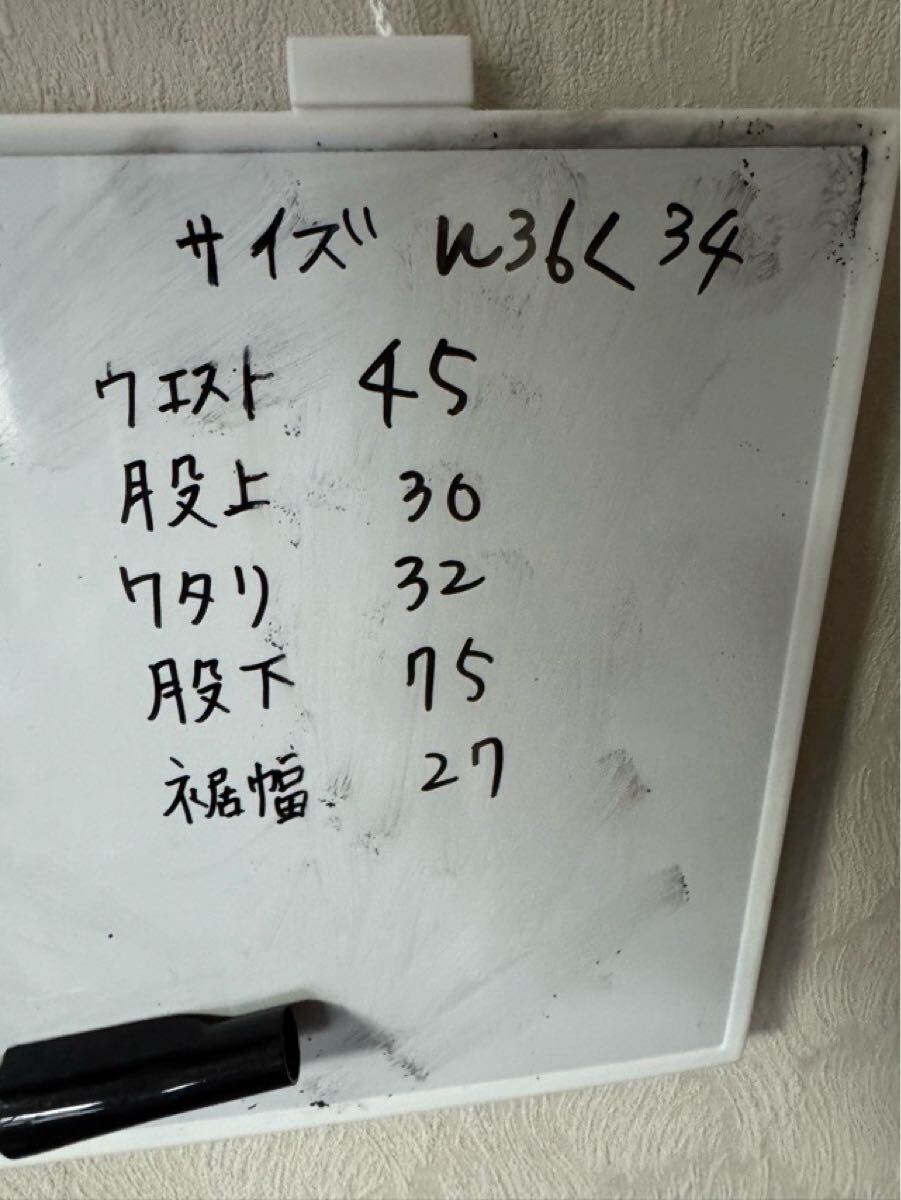 サイズ W36L34
ウエスト 45
股上 30
ワタリ 32
股下 75
裾幅 27